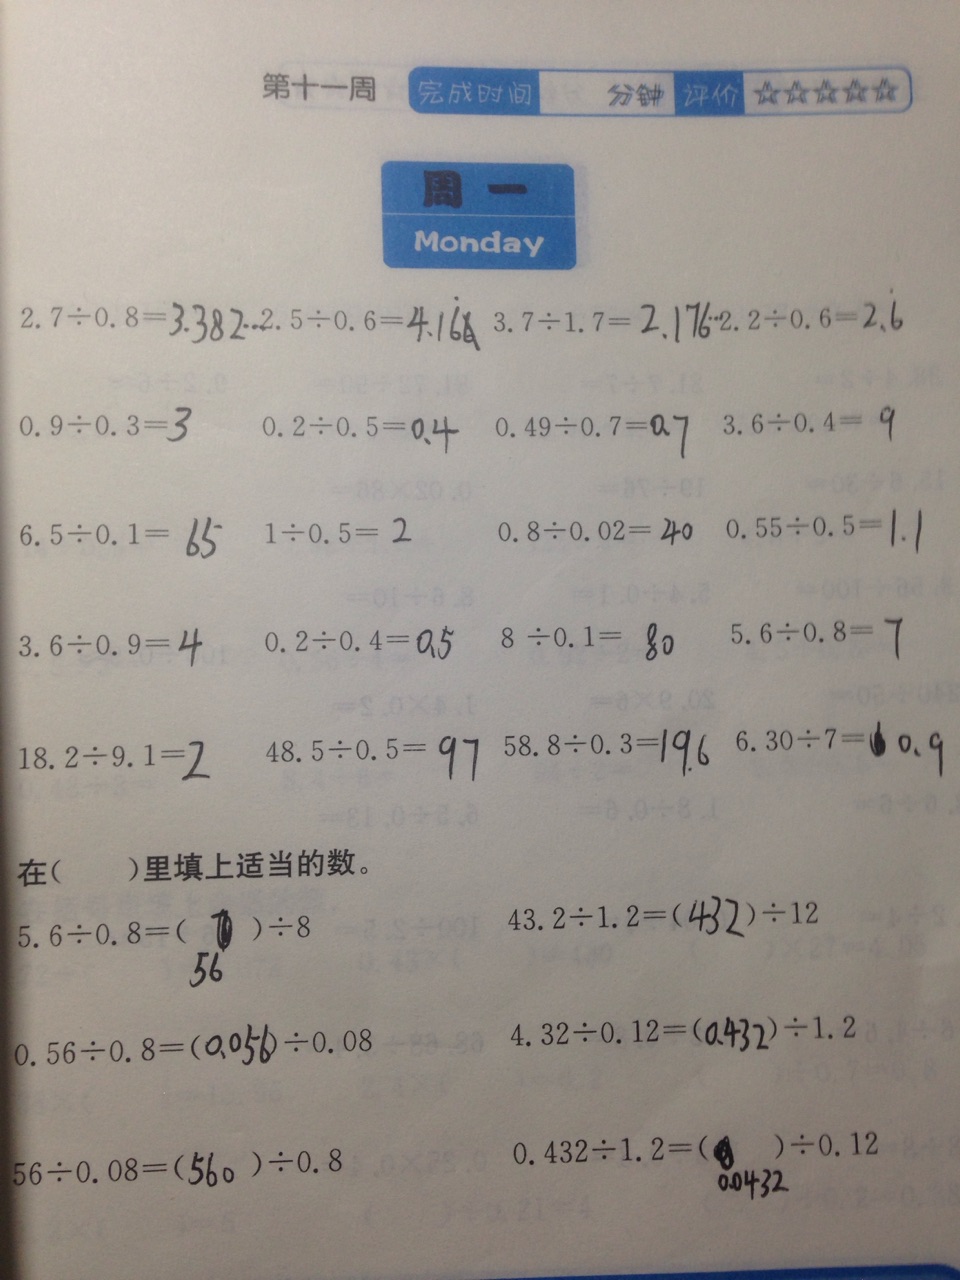 第十一周 完成时间 分钟 评价 ☆☆☆☆☆
周一
Monday
2.7÷0.8=3.382… 2.5÷0.6=4.16 3.7÷1.7=2.176… 2.2÷0.6=2.6
0.9÷0.3=3 0.2÷0.5=0.4 0.49÷0.7=0.7 3.6÷0.4=9
6.5÷0.1=65 1÷0.5=2 0.8÷0.02=40 0.55÷0.5=1.1
3.6÷0.9=4 0.2÷0.4=0.5 8÷0.1=80 5.6÷0.8=7
18.2÷9.1=2 48.5÷0.5=97 58.8÷0.3=19.6 6.30÷7=0.9
在( )里填上适当的数。
5.6÷0.8=( )÷8 43.2÷1.2=(432)÷12
56
0.56÷0.8=(0.056)÷0.08 4.32÷0.12=(0.432)÷1.2
56÷0.08=(560)÷0.8 0.432÷1.2=( )÷0.12
0.0432